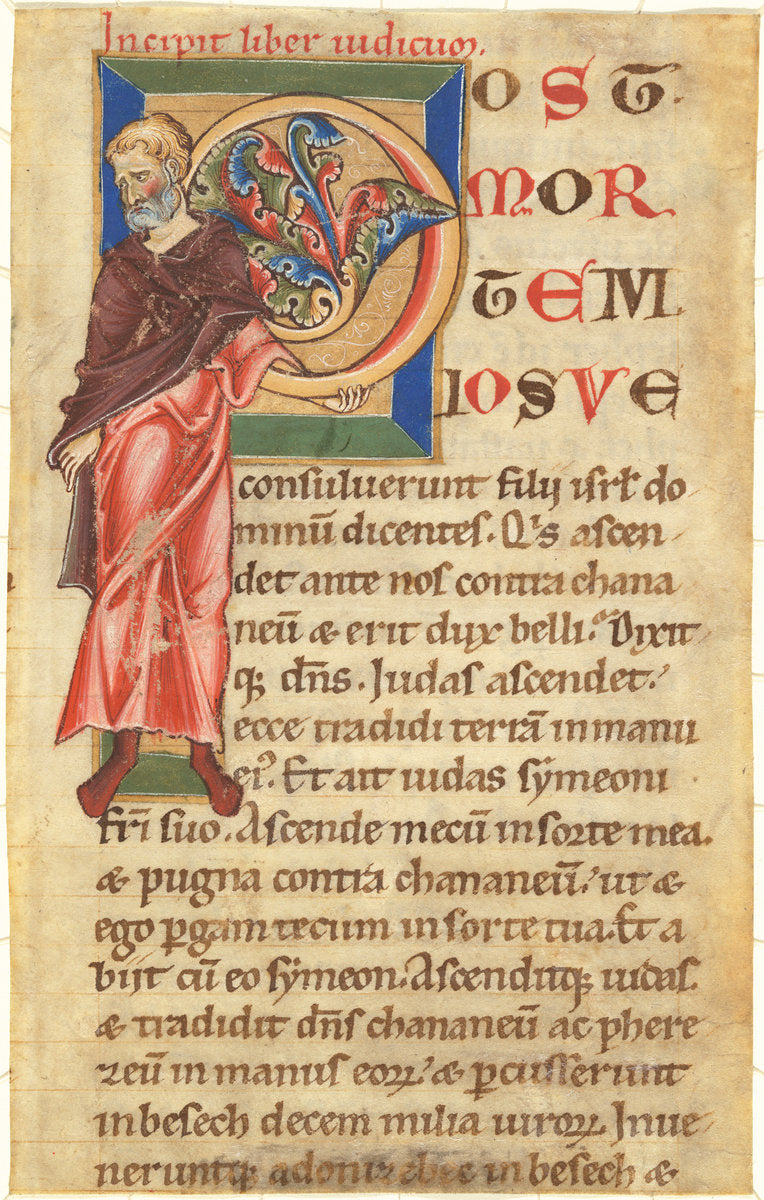 Incipit liber iudicum.
POST
MORT
TEM
IOSVE
consuluerunt filij isrł do
minū dicentes. Qis ascen
det ante nos contra chana
neū & erit dux belli. Dixit
q; dn̄s. Judas ascendet.
ecce tradidi terrā in manu
ei9. Et ait iudas sẏmeoni
fr̄i suo. Ascende mecū in sorte mea.
& pugna contra chananeū. ut &
ego ꝑgam tecum in sorte tua. Et a
biit cū eo sẏmeon. Ascenditq; iudas.
& tradidit dn̄s chananeū ac phere
zeū in manus eoꝝ. & ꝑcusserunt
in besech decem milia uiroꝝ. Inue
neruntq; adonizebec in besech &